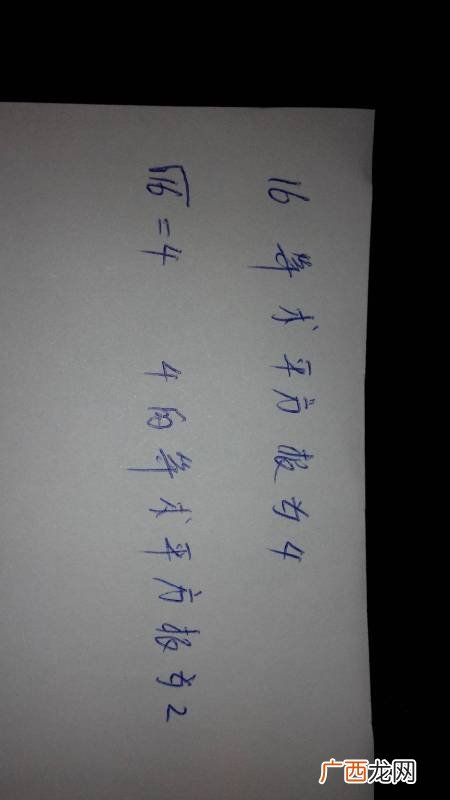 16 算术平方根为4
√16 = 4 4的算术平方根为2
广西龙网